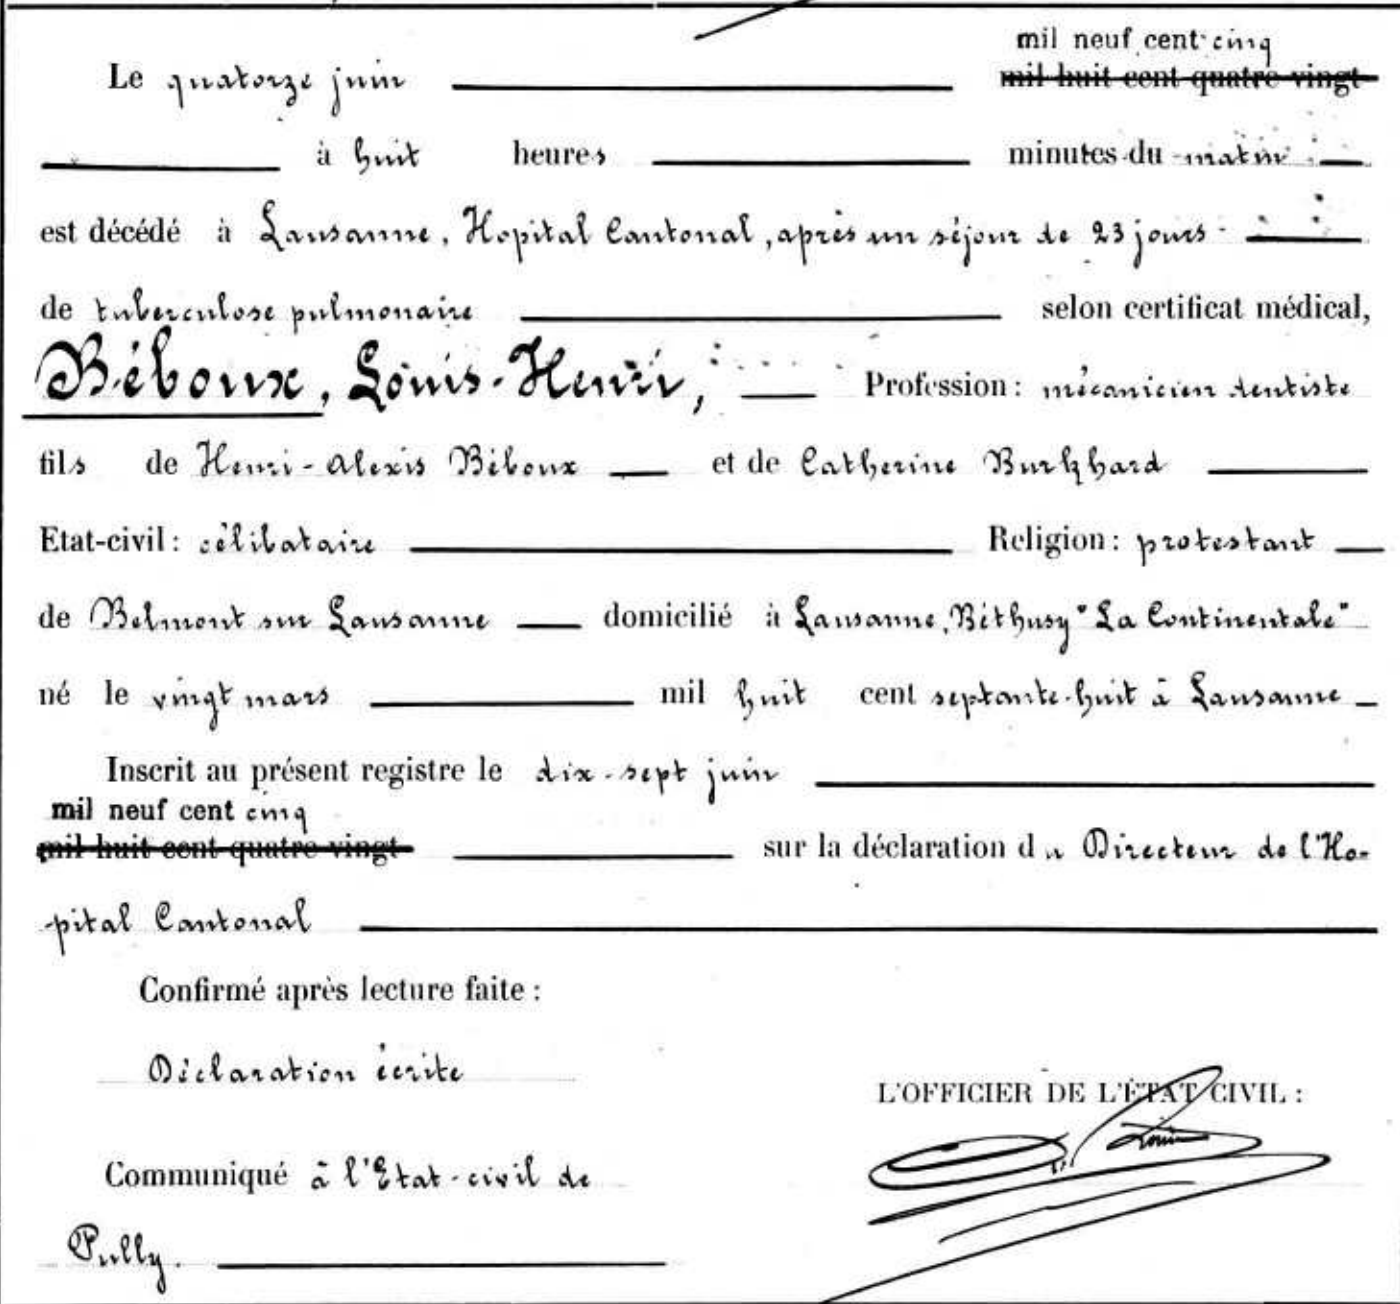 mil neuf cent cinq
Le quatorze juin mil huit cent quatre vingt
à huit heures minutes du matin
est décédé à Lausanne, Hopital Cantonal, après un séjour de 23 jours
de tuberculose pulmonaire selon certificat médical,
Béboux, Louis-Henri, Profession: mécanicien dentiste
fils de Henri-Alexis Béboux et de Catherine Burkhard
Etat-civil: célibataire Religion: protestant
de Belmont sur Lausanne domicilié à Lausanne, Béthusy "La Continentale"
né le vingt mars mil huit cent septante-huit à Lausanne
Inscrit au présent registre le dix-sept juin
mil neuf cent cinq
mil huit cent quatre vingt sur la déclaration du Directeur de l'Ho-
-pital Cantonal
Confirmé après lecture faite:
Déclaration écrite
L'OFFICIER DE L'ÉTAT CIVIL:
Communiqué à l'Etat-civil de
Pully.